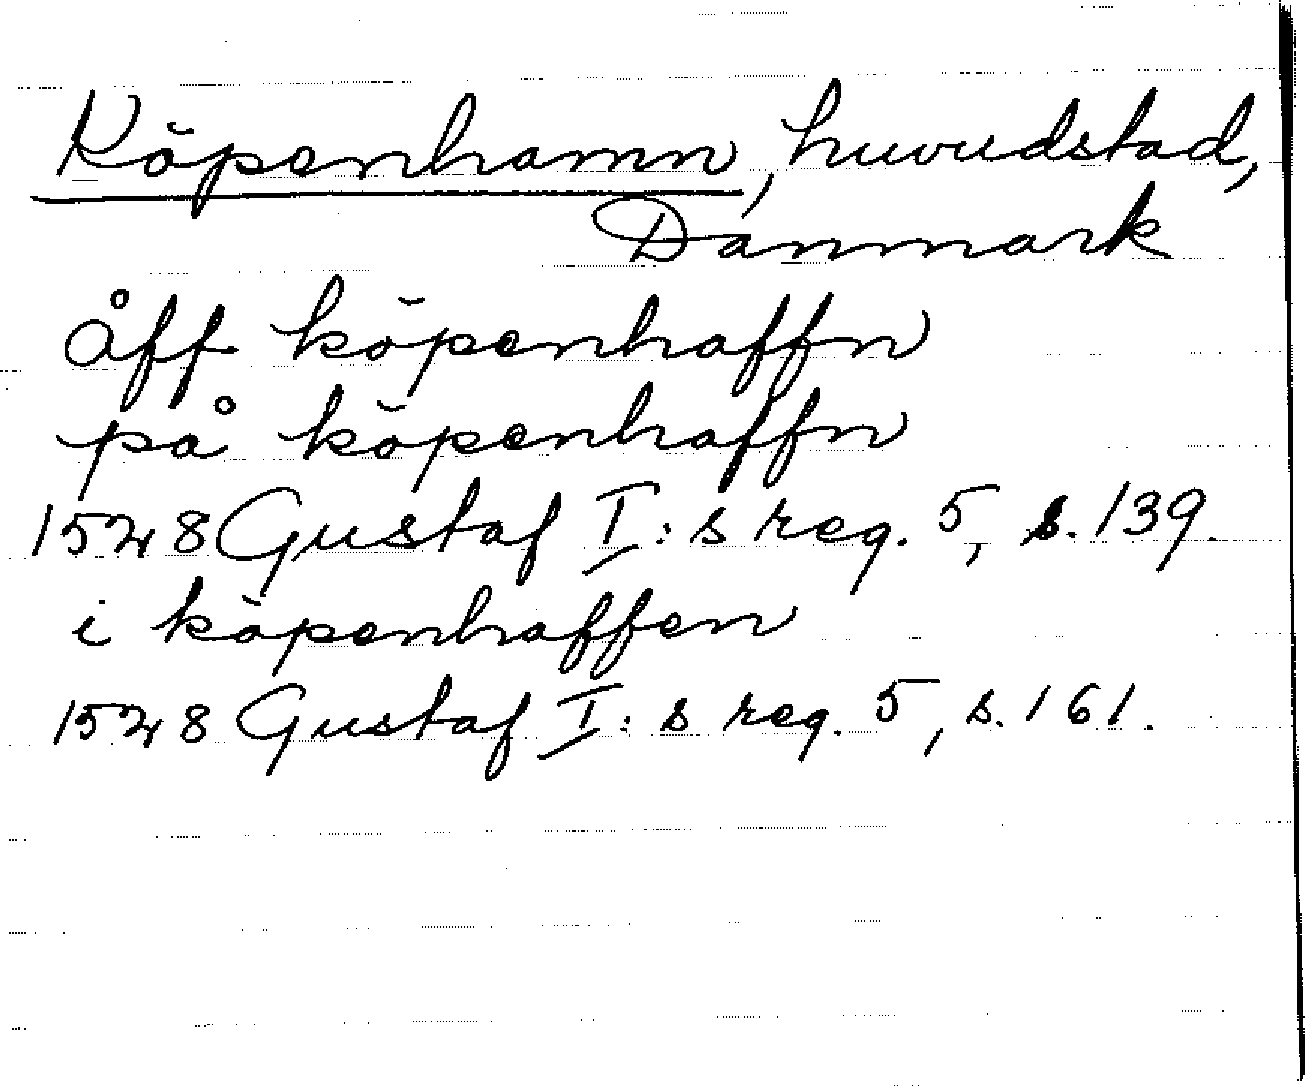 Köpenhamn, huvudstad,
Danmark
åff köpenhaffn
på köpenhaffn
1528 Gustaf I:s reg. 5, s. 139.
i köpenhaffen
1528 Gustaf I:s reg. 5, s. 161.